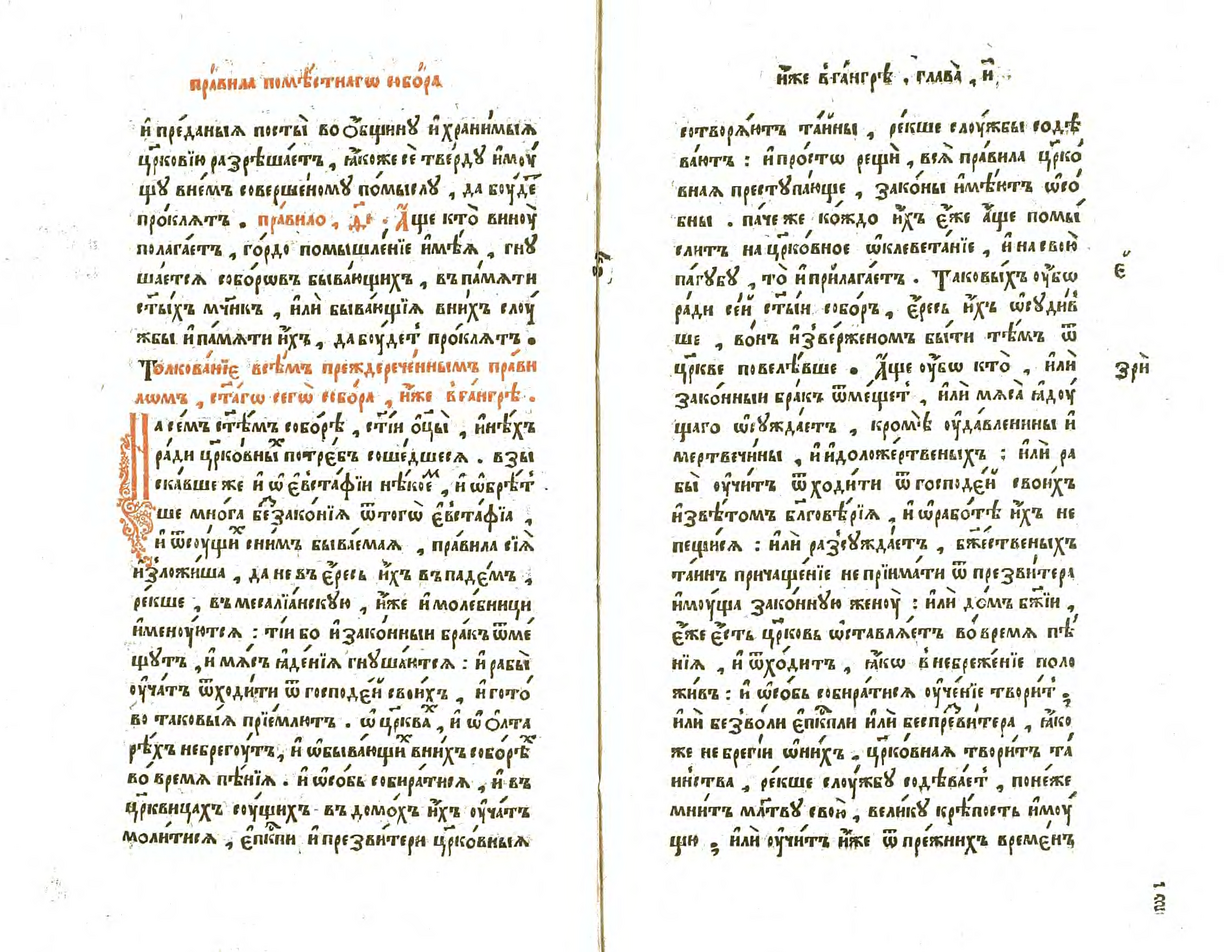 пра́вила помѣ́стнагѡ собо́ра
и҆ пре́даныѧ посты̀ во ѻ҆́бщинꙋ и҆ храни́мыѧ
цр҃ко́вїю разрѣша́етъ, ꙗ҆́коже сѐ тве́рдꙋ и҆моу́
щꙋ вне́мъ соверше́номꙋ по́мыслꙋ, да боу́де
про́клѧтъ. пра́вило, А҆́ще кто̀ виноу̀
полага́етъ, го́рдо помышле́нїе и҆мѣ́ѧ, гнꙋ
ша́етсѧ собо́рѡвъ быва́ющихъ, в па́мѧти
ст҃ы́хъ мч҃нкъ, и҆лѝ быва́ющїѧ вни́хъ слоу́
жбы и҆ па́мѧти и҆́хъ, да боу́детъ про́клѧтъ.
Толкова́нїе всѣ́мъ преждерече́ннымъ пра́ви
лѡмъ, ст҃а́гѡ сегѡ̀ собо́ра, и҆́же в га́нгрѣ.
На се́мъ ст҃ѣ́мъ собо́рѣ, ст҃і́и ѻ҆ц҃ы̀, и҆ нѣ́хъ
ра́ди цр҃ко́вны потре́бъ соше́дшесѧ. взы
ска́вше же и҆ ѡ҆ є҆vста́фїи нѣ́коем, и҆ ѡ҆брѣ́т
ше мно́га беззако́нїѧ ѿтогѡ̀ є҆vста́фїа,
и҆ ѿсоу́щих сни́мъ быва́емаѧ, пра́вила сїѧ̀
и҆зложи́ша, да не въ є҆́ресь и҆́хъ въпаде́мъ,
ре́кше, въ месалїа́нскꙋю, и҆́же и҆ моле́бници
и҆менꙋ́ютсѧ: ті́и бо и҆ зако́нныи бра́къ ѿме
щꙋтъ, и҆ мѧ́съ ꙗ҆де́нїѧ гнꙋша́ютсѧ: и҆ рабы̀
оу҆ча́тъ ѿходи́ти ѿ господе́й свои́хъ, и҆ гото́
во таковы́ѧ прїе́млютъ. ѡ҆ цр҃ква́х, и҆ ѡ҆ ѻ҆лта
рѣ́хъ небрегоу́тъ, и҆ ѡ҆быва́ющих вни́хъ собо́рѣх
во вре́мѧ пѣ́нїѧ. и҆ ѡ҆со́бь собира́тисѧ, и҆ въ
цр҃квицахъ соу́щихъ въ домо́хъ и҆́хъ оу҆ча́тъ
моли́тисѧ, є҆пⷭ҇кпи и҆ презви́тери цр҃ко́вныѧ
и҆́же в га́нгрѣ, глава̀, и҃,
сотворѧ́ютъ та́йны, ре́кше слоу́жбы содѣ
ва́ютъ: и҆ про́стѡ рещѝ, всѧ̀ пра́вила цр҃ко́
внаѧ престꙋпа́юще, зако́ны и҆мѣ́ютъ ѡ҆со́
бны. паче же ко́ждо и҆́хъ є҆́же а҆́ще помы́
слитъ на цр҃ко́вное ѡ҆клевета́нїе, и҆ на свою̀
па́гꙋбꙋ, то̀ и҆ прилага́етъ. Таковы́хъ оу҆́бѡ
ра́ди се́й ст҃ы́и собо́ръ, є҆́ресь и҆́хъ ѡ҆сꙋди́в
ше, во́нъ и҆зве́рженомъ бы́ти тѣ́мъ ѿ
цр҃кве повелѣ́вше. А҆́ще оу҆́бѡ кто̀, и҆лѝ
зако́нныи бра́къ ѿме́щет, и҆лѝ мѧ́са ꙗ҆доу́
щаго ѡ҆сꙋжда́етъ, кро́мѣ оу҆да́вленины и҆
мертвечи́ны, и҆ и҆доложе́ртвеныхъ: и҆лѝ ра
бы̀ оу҆чи́тъ ѿходи́ти ѿ господе́й свои́хъ
и҆звѣ́томъ бл҃говѣ́рїѧ, и҆ ѡ҆ рабо́тѣ и҆́хъ не
пещи́сѧ: и҆лѝ разсꙋжда́етъ, бж҃е́ственыхъ
та́инъ причаще́нїе не прїима́ти ѿ презви́тера
и҆моу́ща зако́ннꙋю женоу̀: и҆лѝ до́мъ бж҃їи,
є҆́же є҆́сть цр҃ковь ѡ҆ставлѧ́етъ во вре́мѧ пѣ́
нїѧ, и҆ ѿхо́дитъ, ꙗ҆́кѡ в небреже́нїе поло
жи́въ: и҆ ѡ҆со́бь собира́тисѧ оу҆че́нїе твори́т;
и҆лѝ без во́ли є҆пⷭ҇кпли и҆лѝ беспрезви́тера, ꙗ҆́ко
же не брегі́и ѡ҆ни́хъ, цр҃ко́внаѧ твори́тъ та́
и́нства, ре́кше слоу́жбꙋ содѣва́ет, поне́же
мни́тъ мл҃твꙋ свою̀, вели́кꙋ крѣ́пость и҆моу́
щю; и҆лѝ оу҆чи́тъ и҆́же ѿ пре́жнихъ време́нъ
є҃
зрѝ